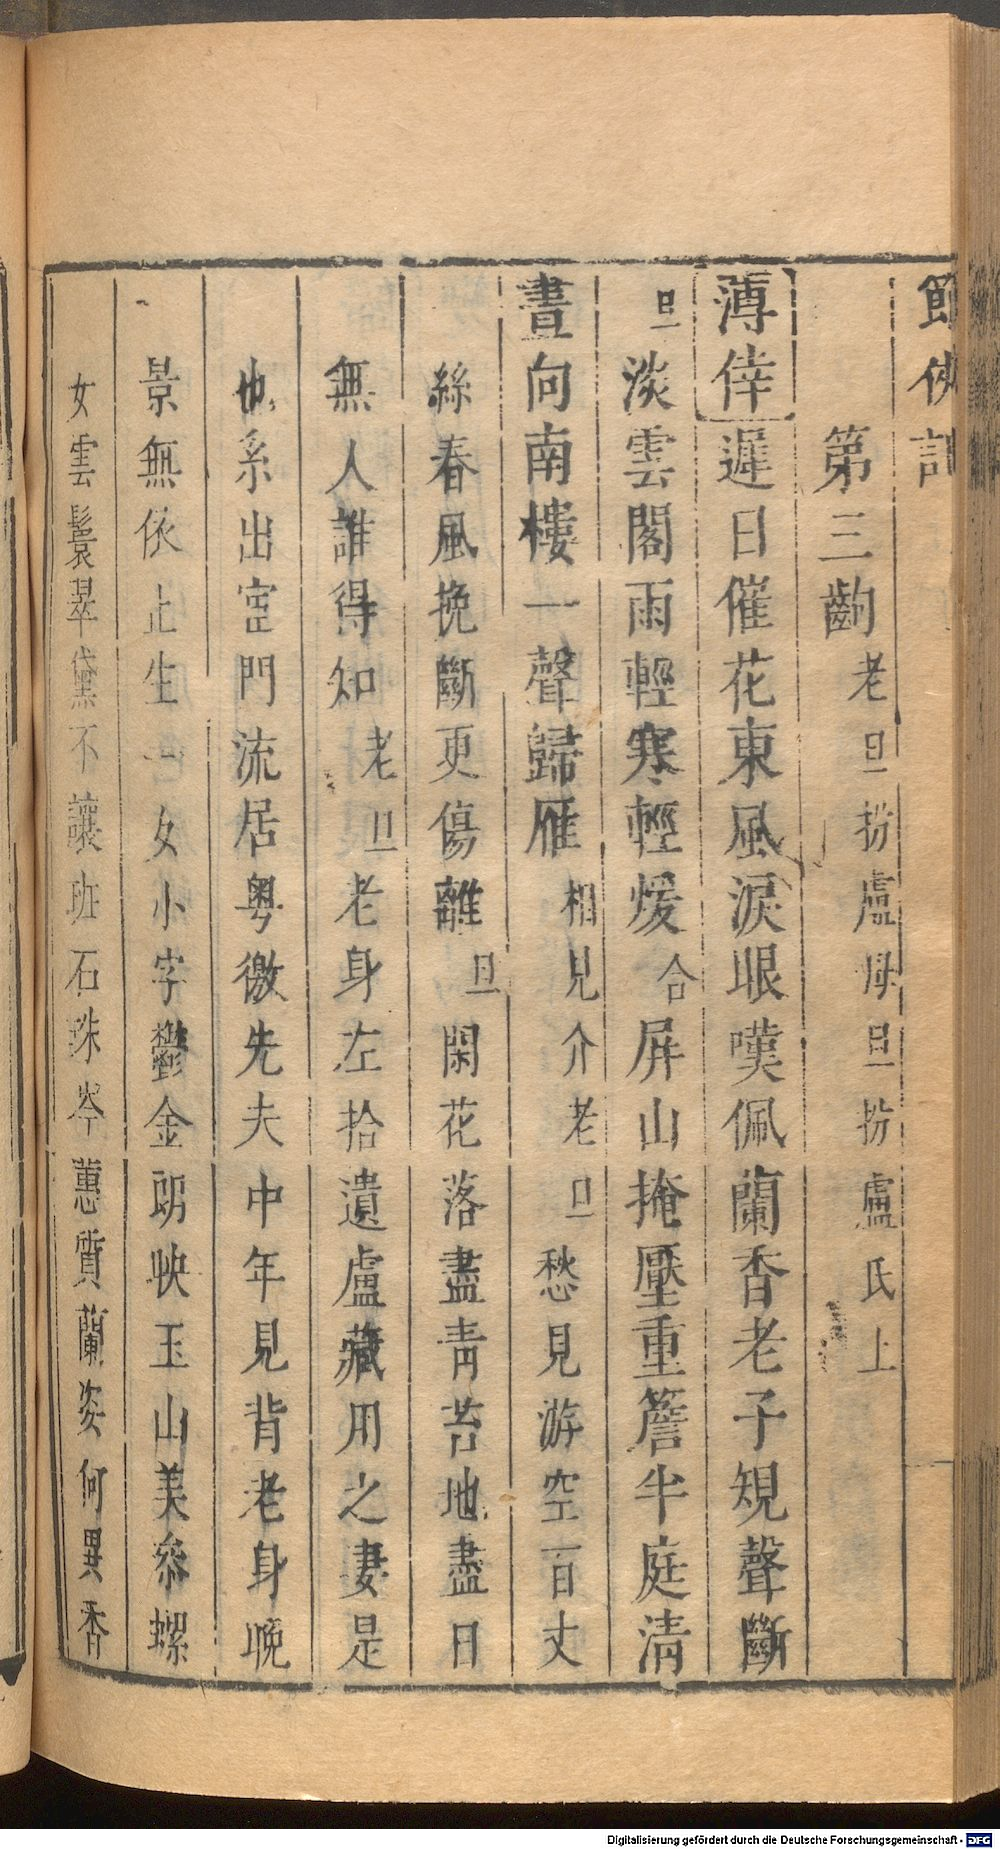 節俠記
第三齣 老旦扮盧母旦扮盧氏上
薄倖遲日催花東風淚眼嘆佩蘭香老子規聲斷
旦淡雲閣雨輕寒輕煖合屏山掩壓重簷半庭清
晝向南樓一聲歸雁相見介老旦愁見游空百丈
絲春風挽斷更傷離旦閑花落盡青苔地盡日
無人誰得知老旦老身左拾遺盧藏用之妻是
也系出宦門流居粵徼先夫中年見背老身晚
景無依止生一女小字鬱金朗映玉山美叅螺
女雲鬟翠黛不讓班石珠岑蕙質蘭姿何異香
Digitalisierung gefördert durch die Deutsche Forschungsgemeinschaft - DFG